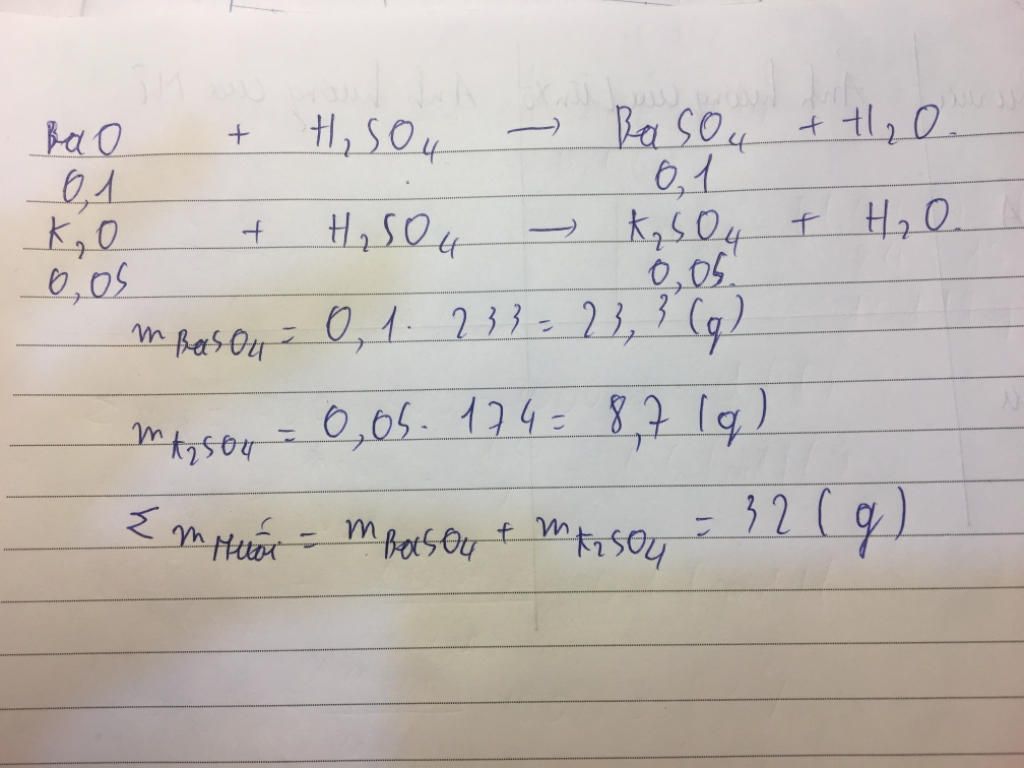 BaO + H₂SO₄ → BaSO₄ + H₂O.
0,1 0,1
K₂O + H₂SO₄ → K₂SO₄ + H₂O.
0,05 0,05.
m BaSO₄ = 0,1. 233 = 23,3 (g)
m K₂SO₄ = 0,05. 174 = 8,7 (g)
Σ m Muối = m BaSO₄ + m K₂SO₄ = 32 (g)